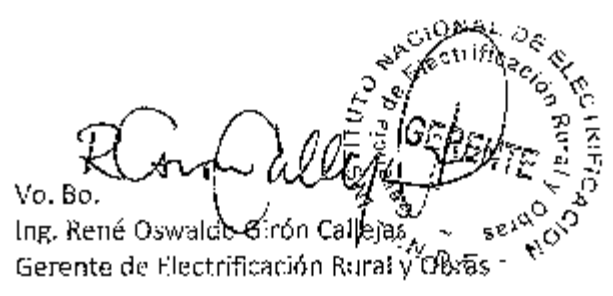 INSTITUTO NACIONAL DE ELECTRIFICACION
Gerencia de Electrificación Rural y Obras
GERENTE
Vo. Bo.
Ing. René Oswaldo Girón Callejas
Gerente de Electrificación Rural y Obras